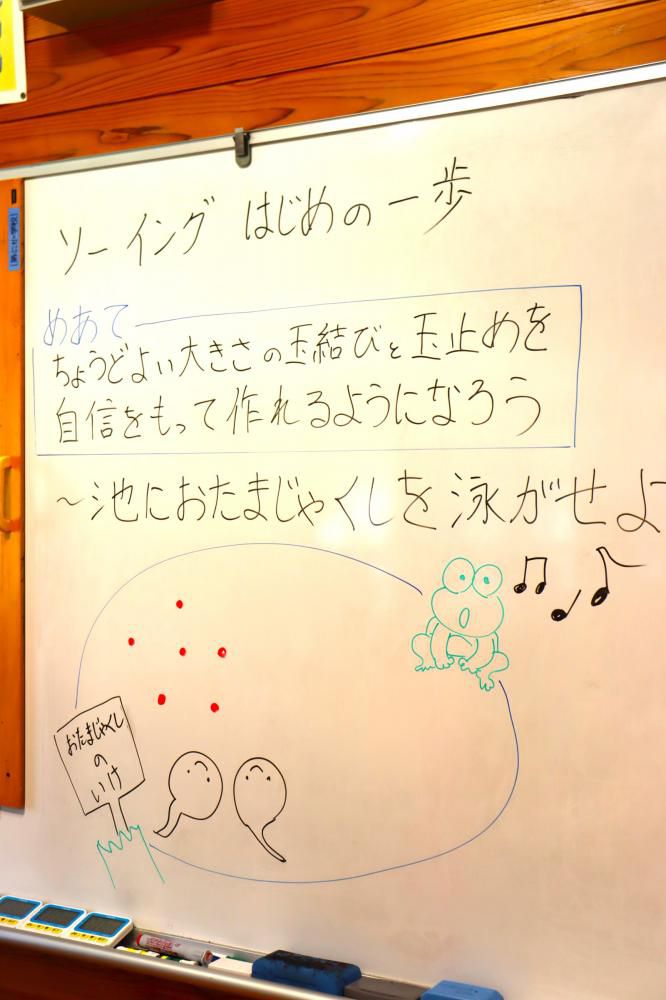 ソーイング はじめの一歩
めあて
ちょうどよい大きさの玉結びと玉止めを
自信をもって作れるようになろう
～池におたまじゃくしを泳がせよ
おたまじゃくし
の
いけ